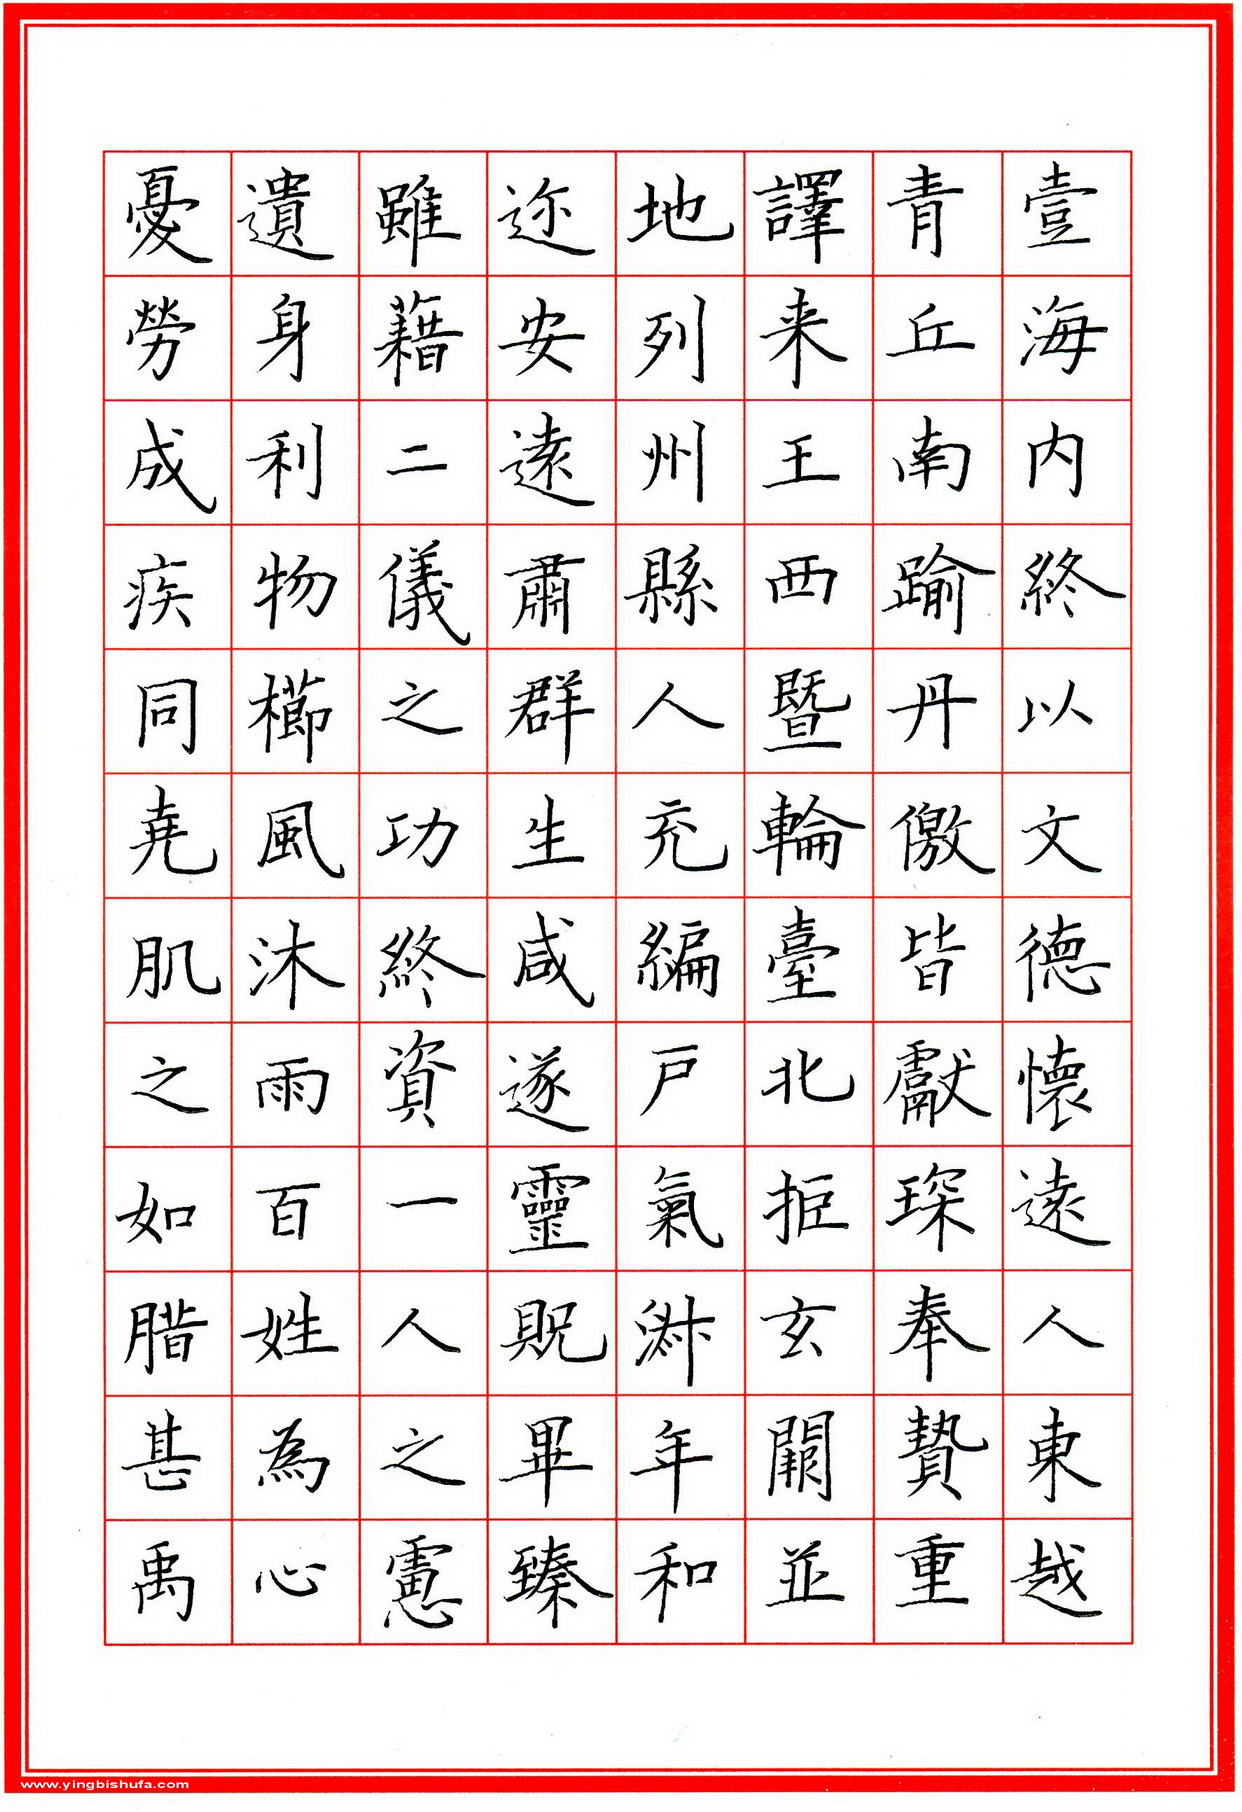 壹海内終以文德懷遠人東越
青丘南踰丹儌皆獻琛奉贄重
譯来王西曁輪臺北拒玄闕並
地列州縣人充編戸氣淑年和
迩安遠肅群生咸遂靈貺畢臻
雖藉二儀之功終資一人之慮
遺身利物櫛風沐雨百姓為心
憂勞成疾同堯肌之如腊甚禹
www.yingbishufa.com